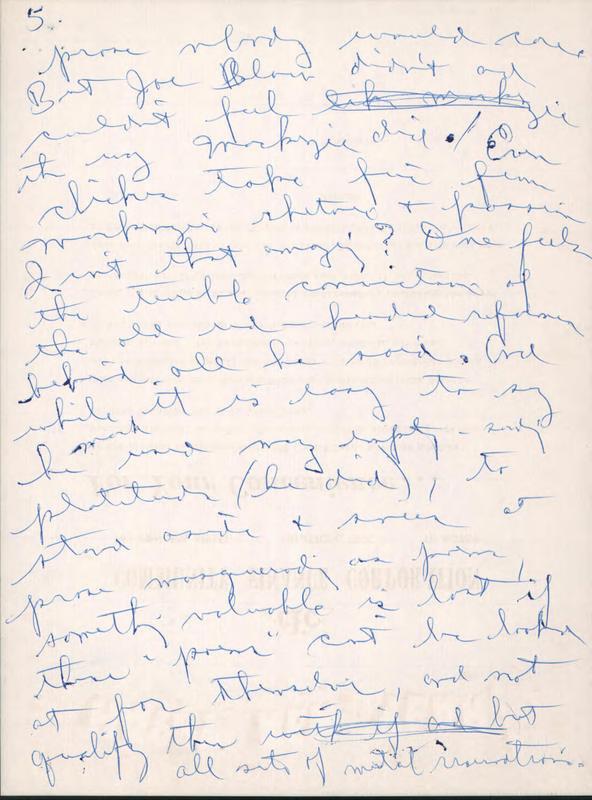 5.
prose nobody would care
But Joe Blow didn't and
couldn't feel like Mackenzie
the way Mackenzie did. / Even
cliches take fire from
Mackenzie's rhetoric + passion
Isn't that amazing? One feels
the terrible conviction of
the old red-headed reformer
behind all he said. And
while it is easy to say
he used many empty-sounding
mank
platitudes (he did), to
stand aside & sneer at
prose masquerading as poems,
something valuable is lost if
these "poems" can't be looked
at for themselves, and not
qualify them with if and but
all sorts of mental reservations.